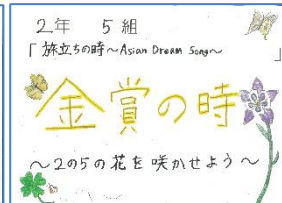 2年 5組
「旅立ちの時～Asian Dream Song～」
金賞の時
～2の5の花を咲かせよう～